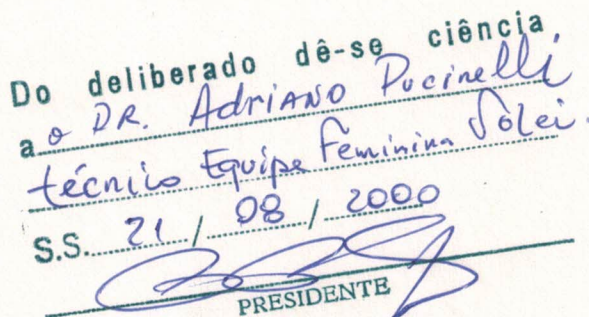 Do deliberado dê-se ciência
a o DR. Adriano Pucinelli
técnico Equipe Feminina Vôlei.
S.S. 21 / 08 / 2000
PRESIDENTE